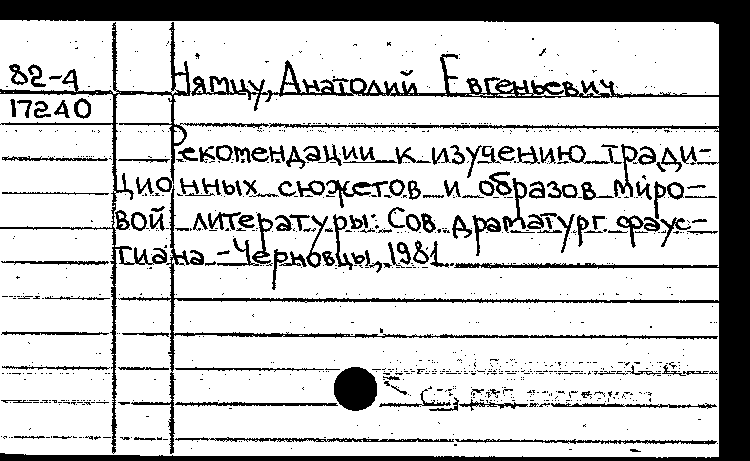 82-4 Нямцу, Анатолий Евгеньевич
17240
Рекомендации к изучению тради-
ционных сюжетов и образов миро-
вой литературы: Сов. драматург. фаус-
тиана - Черновцы, 1981